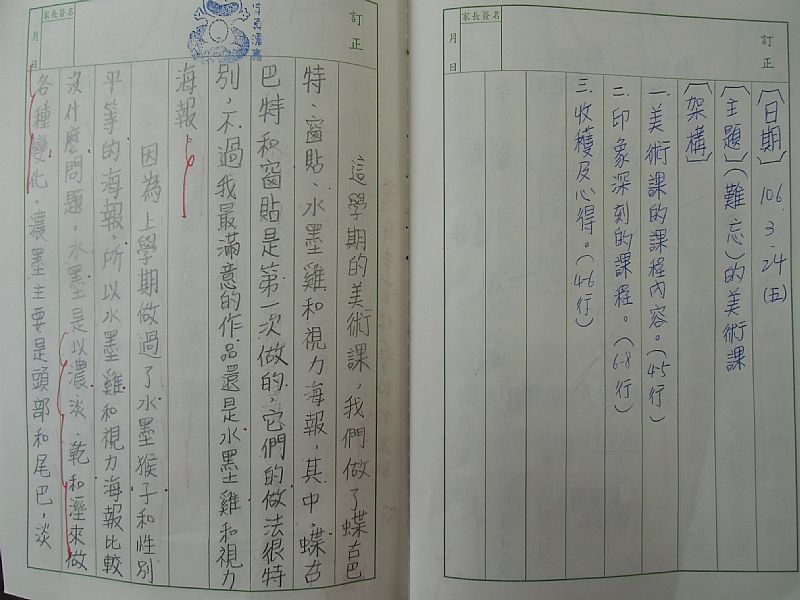 家長簽名
月 日
訂正
〔日期〕106.3.24(五)
〔主題〕(難忘)的美術課
〔架構〕
一.美術課的課程內容。(4-5行)
二.印象深刻的課程。(6-8行)
三.收穫及心得。(4-6行)
家長簽名
月 日
訂正
這學期的美術課,我們做了蝶古巴
特、窗貼、水墨雞和視力海報,其中,蝶古
巴特和窗貼是第一次做的,它們的做法很特
別,不過我最滿意的作品還是水墨雞和視力
海報。
因為上學期做過了水墨猴子和性別
平等的海報,所以水墨雞和視力海報比較
沒什麼問題,水墨是以濃、淡、乾和溼來做
各種變化,濃墨主要是頭部和尾巴,淡